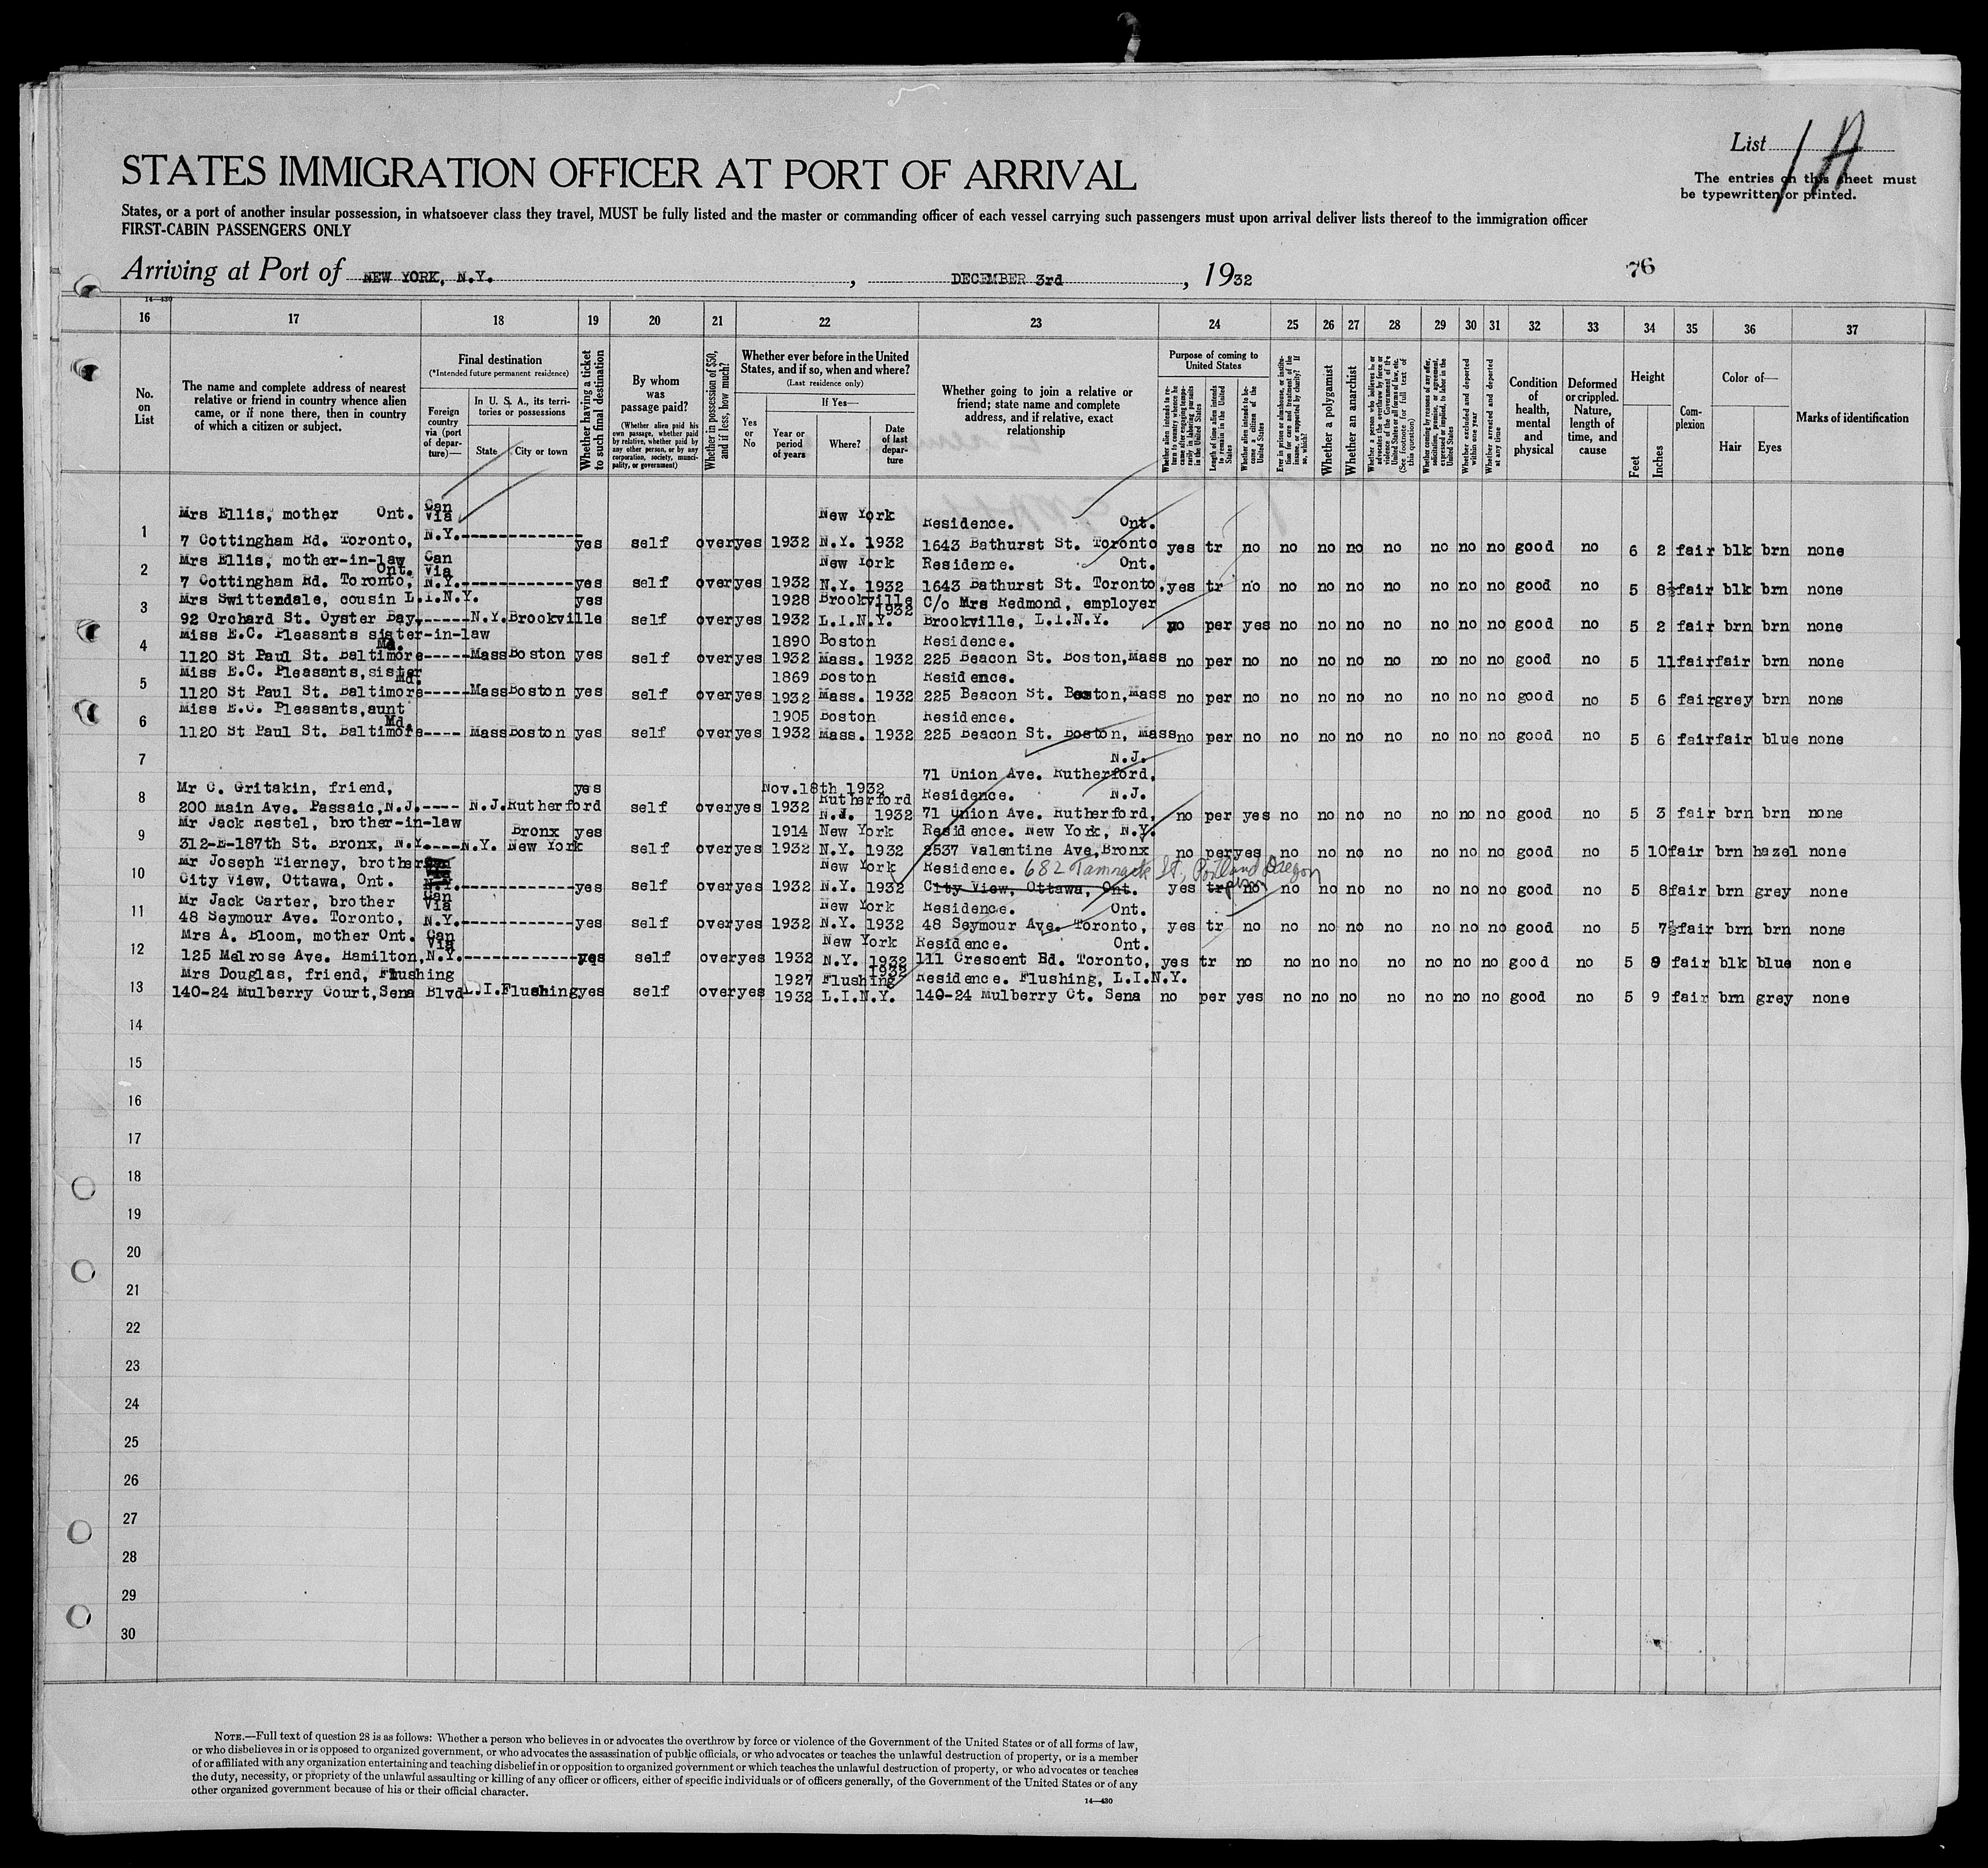 List 1 A
The entries on this sheet must
be typewritten or printed.
STATES IMMIGRATION OFFICER AT PORT OF ARRIVAL
States, or a port of another insular possession, in whatsoever class they travel, MUST be fully listed and the master or commanding officer of each vessel carrying such passengers must upon arrival deliver lists thereof to the immigration officer
FIRST-CABIN PASSENGERS ONLY
Arriving at Port of NEW YORK, N.Y. , DECEMBER 3rd , 1932
76
14—430
16 17 18 19 20 21 22 23 24 25 26 27 28 29 30 31 32 33 34 35 36 37
No. on List
The name and complete address of nearest
relative or friend in country whence alien
came, or if none there, then in country
of which a citizen or subject.
Final destination
(*Intended future permanent residence)
Foreign country via (port of departure)—
In U. S. A., its territories or possessions
State
City or town
Whether having a ticket to such final destination
By whom was passage paid?
(Whether alien paid his own passage, whether paid by relative, whether paid by any other person, or by any corporation, society, municipality, or government)
Whether in possession of $50, and if less, how much?
Whether ever before in the United
States, and if so, when and where?
(Last residence only)
Yes or No
If Yes—
Year or period of years
Where?
Date of last departure
Whether going to join a relative or
friend; state name and complete
address, and if relative, exact
relationship
Purpose of coming to
United States
Whether alien intends to return to country whence he came after engaging temporarily in laboring pursuits in the United States
Length of time alien intends to remain in the United States
Whether alien intends to become a citizen of the United States
Ever in prison or almshouse, or institution for care and treatment of the insane, or supported by charity? If so, which?
Whether a polygamist
Whether an anarchist
Whether a person who believes in or advocates the overthrow by force or violence of the Government of the United States or all forms of law, etc. (See footnote for full text of this question)
Whether coming by reasons of any offer, solicitation, promise, or agreement, expressed or implied, to labor in the United States
Whether excluded and deported within one year
Whether arrested and deported at any time
Condition of health, mental and physical
Deformed or crippled. Nature, length of time, and cause
Height
Feet
Inches
Complexion
Color of—
Hair
Eyes
Marks of identification
Mrs Ellis, mother Ont. Can Via New York Residence. Ont.
1 7 Cottingham Rd. Toronto, N.Y. yes self over yes 1932 N.Y. 1932 1643 Bathurst St. Toronto yes tr no no no no no no no no good no 6 2 fair blk brn none
Mrs Ellis, mother-in-law Ont. Can Via New York Residence. Ont.
2 7 Cottingham Rd. Toronto, N.Y. yes self over yes 1932 N.Y. 1932 1643 Bathurst St. Toronto, yes tr no no no no no no no no good no 5 8½ fair blk brn none
Mrs Swittendale, cousin L.I.N.Y. yes 1928 Brookville 1932 C/o Mrs Redmond, employer
3 92 Orchard St. Oyster Bay, N.Y. Brookville self over yes 1932 L.I.N.Y. Brookville, L.I.N.Y. no per yes no no no no no no no good no 5 2 fair brn brn none
Miss E.C. Pleasants sister-in-law Md. 1890 Boston Residence.
4 1120 St Paul St. Baltimore Mass Boston yes self over yes 1932 Mass. 1932 225 Beacon St. Boston, Mass no per no no no no no no no no good no 5 11 fair fair brn none
Miss E.C. Pleasants, sister Md. 1869 Boston Residence.
5 1120 St Paul St. Baltimore Mass Boston yes self over yes 1932 Mass. 1932 225 Beacon St. Boston, Mass no per no no no no no no no no good no 5 6 fair grey brn none
Miss E.C. Pleasants, aunt Md. 1905 Boston Residence.
6 1120 St Paul St. Baltimore Mass Boston yes self over yes 1932 Mass. 1932 225 Beacon St. Boston, Mass no per no no no no no no no no good no 5 6 fair fair blue none
7 N.J.
71 Union Ave. Rutherford,
Mr C. Gritakin, friend, yes Nov. 18th 1932 Rutherford Residence. N.J.
8 200 Main Ave. Passaic, N.J. N.J. Rutherford self over yes 1932 N.J. 1932 71 Union Ave. Rutherford, no per yes no no no no no no no good no 5 3 fair brn brn none
Mr Jack Restel, brother-in-law Bronx yes 1914 New York Residence. New York, N.Y.
9 312-E-187th St. Bronx, N.Y. N.Y. New York self over yes 1932 N.Y. 1932 2537 Valentine Ave, Bronx no per yes no no no no no no no good no 5 10 fair brn hazel none
Mr Joseph Tierney, brother Can Via New York Residence. 682 Tamrack St., Portland Oregon
10 City View, Ottawa, Ont. N.Y. yes self over yes 1932 N.Y. 1932 City View, Ottawa, Ont. yes tr no no no no no no no no good no 5 8 fair brn grey none
Mr Jack Carter, brother Can Via New York Residence. Ont.
11 48 Seymour Ave. Toronto, N.Y. yes self over yes 1932 N.Y. 1932 48 Seymour Ave. Toronto, yes tr no no no no no no no no good no 5 7½ fair brn brn none
Mrs A. Bloom, mother Ont. Can Via New York Residence. Ont.
12 125 Melrose Ave. Hamilton, N.Y. yes self over yes 1932 N.Y. 1932 111 Crescent Bd. Toronto, yes tr no no no no no no no no good no 5 9 fair blk blue none
Mrs Douglas, friend, Flushing 1927 Flushing 1932 Residence. Flushing, L.I.N.Y.
13 140-24 Mulberry Court, Sena Blvd L.I. Flushing yes self over yes 1932 L.I.N.Y. 140-24 Mulberry Ct. Sena no per yes no no no no no no no good no 5 9 fair brn grey none
14
15
16
17
18
19
20
21
22
23
24
25
26
27
28
29
30
NOTE.—Full text of question 28 is as follows: Whether a person who believes in or advocates the overthrow by force or violence of the Government of the United States or of all forms of law,
or who disbelieves in or is opposed to organized government, or who advocates the assassination of public officials, or who advocates or teaches the unlawful destruction of property, or is a member
of or affiliated with any organization entertaining and teaching disbelief in or opposition to organized government or which teaches the unlawful destruction of property, or who advocates or teaches
the duty, necessity, or propriety of the unlawful assaulting or killing of any officer or officers, either of specific individuals or of officers generally, of the Government of the United States or of any
other organized government because of his or their official character.
14—430